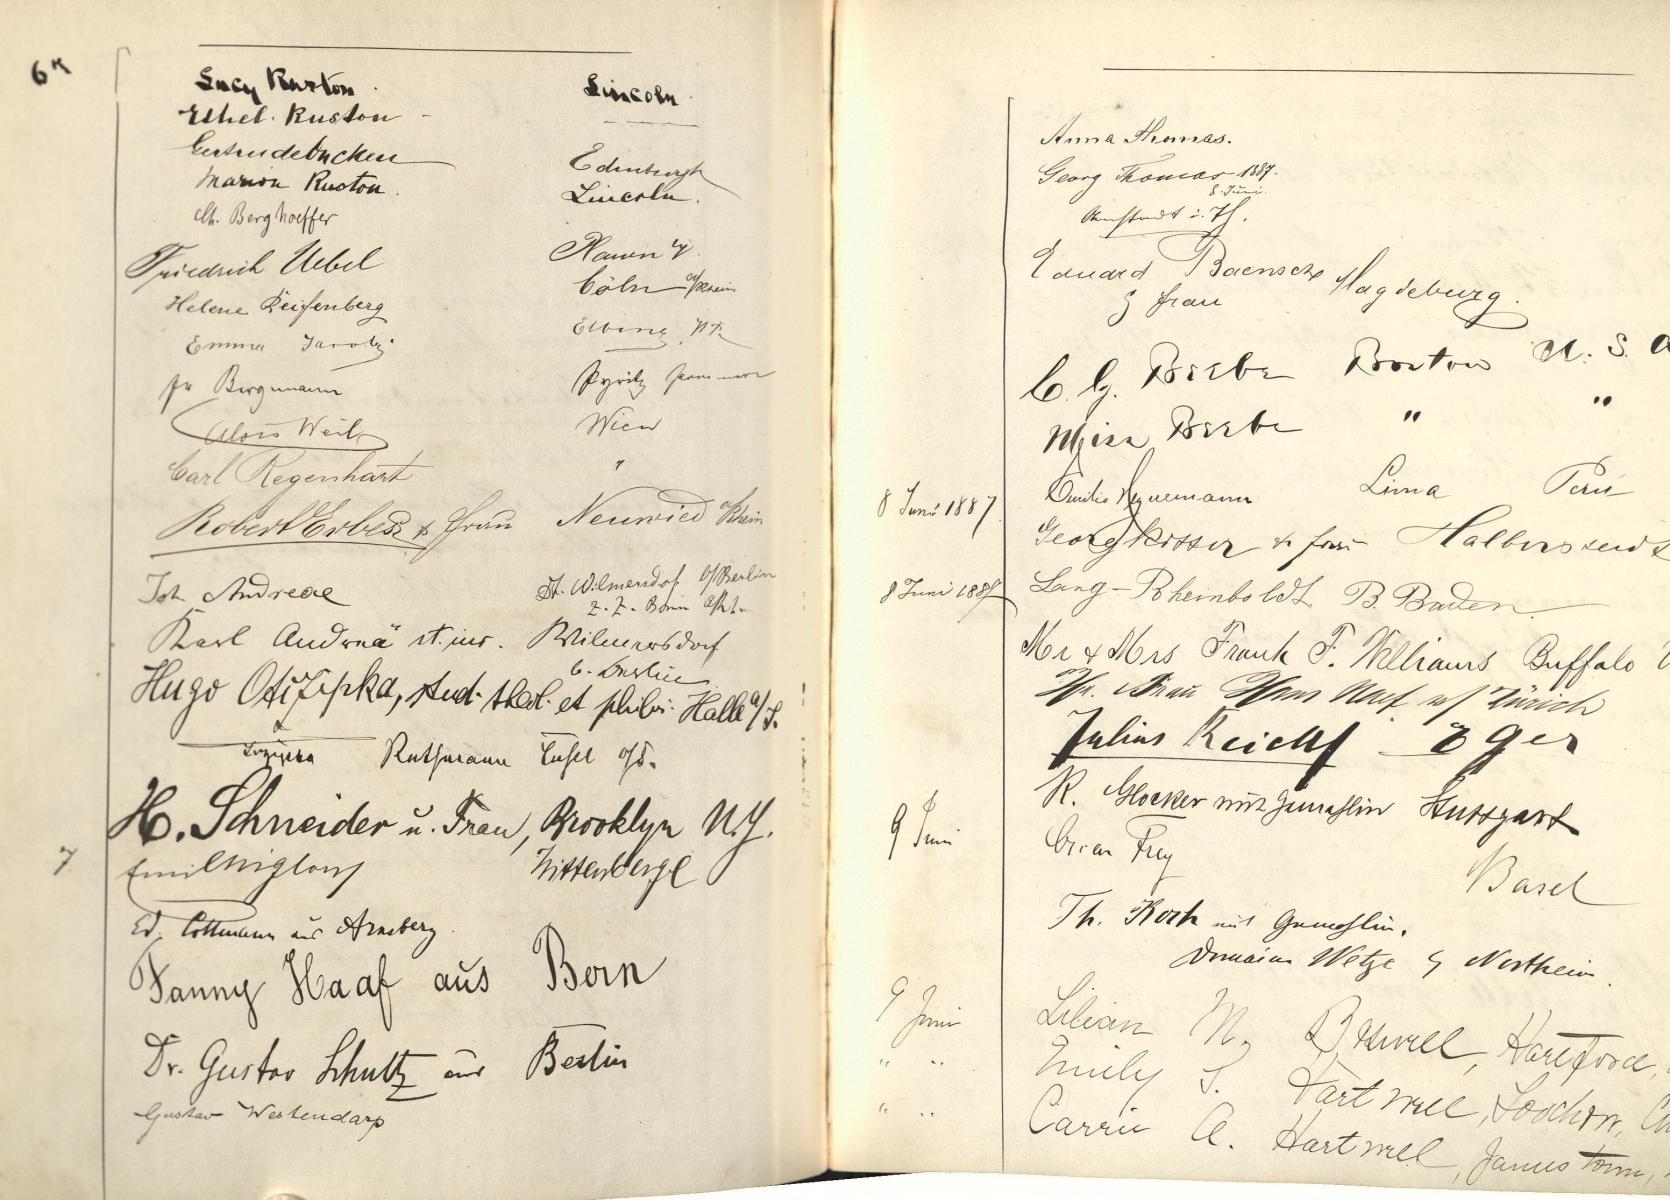 6
Lucy Ruston Lincoln
Ethel Ruston
Gertrude Edinburgh
Marion Ruston. Lincoln.
M. Berghoeffer
Friedrich Uebel Plauen
Helene Reifenberg Cöln a/Rhein
Emma Elbing
Bergmann Pyritz Pommern
Alois Weil Wien
Carl Regenhart "
Robert Erbes & Frau Neuwied a/Rhein
Joh Andreae Dt. Wilmersdorf b/Berlin
z. Z. Bonn a/Rh.
Karl Andreä st. jur. Wilmersdorf
b. Berlin
Hugo Otizipka, stud. theol. et philos. Halle a/S.
Ruthmann
H. Schneider u. Frau, Brooklyn N.Y.
7
Emil Wittenberge
Ed. Cottmann aus Arnsberg.
Fanny Haaf aus Bern
Dr. Gustav Schultz aus Berlin
Gustav Westendarp
Anna Thomas.
Georg Thomas 1887.
8. Juni.
Arnstadt i. Th.
Eduard Baensch Magdeburg.
& Frau
C. G. Beebe Boston U. S. A
Miss Beebe " "
8 Juni 1887 Emilio Lima Perú
Georg & Frau Halberstadt
8 Juni 1887 Lang-Rheinboldt B. Baden
Mr & Mrs Frank F. Williams Buffalo
Hr. & Frau Zürich
Julius Reich Eger
R. Glocker mit Gemahlin Stuttgart
9 Juni
Oscar Frey Basel
Th. Koch mit Gemahlin.
Domaine Wetze b/ Northeim.
9 Juni Lilian M. Hartford,
" " Emily S. Hartwell, Foochow, Ch
" " Carrie A. Hartwell, Jamestown,